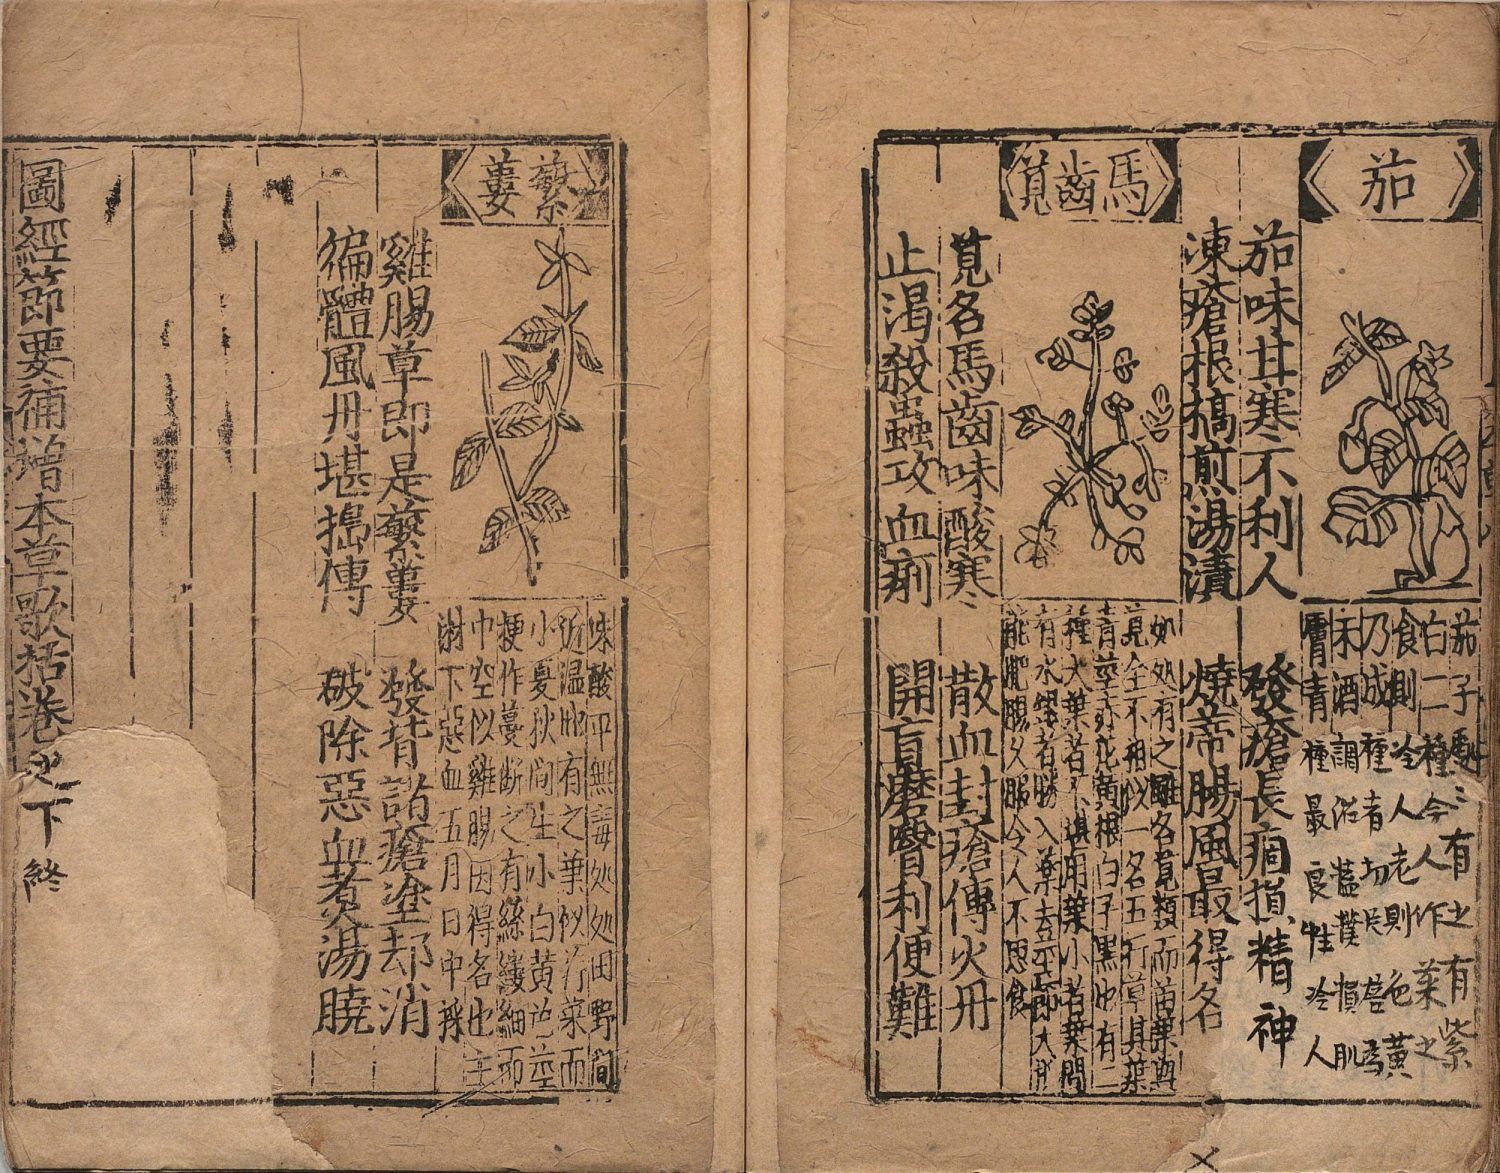 茄
茄子處〻有之有紫
白二種今人作菜之
食則冷人老則色黃
乃成種者切片磨為
末酒調治蘊撲損肌
膚青種最良性冷人
茄味甘寒不利人 發瘡長痼損精神
凍瘡根槁煎湯漬 燒蒂腸風最得名
馬齒莧
処処有之雖名莧類而苗葉與
莧全不相似一名五行草其葉
青莖赤花黃根白子黑也有二
種大葉者不堪用葉小者葉間
有水銀者勝入藥去莖節大抵
能肥腸又服令人不思食
莧名馬齒味酸寒 散血封瘡傳火丹
止渴殺蟲攻血痢 開盲磨翳利便難
蘩蔞
味酸平無毒処処田野間
近温地有之葉似荇菜而
小夏秋间生小白黃花莖
梗作蔓断之有絲縷細而
中空似雞腸因得名也主
淋下惡血五月日中採
雞腸草即是蘩蔞 發背諸瘡塗却消
徧體風丹堪搗傅 破除惡血煮湯曉
圖經節要補增本草歌括卷之下終